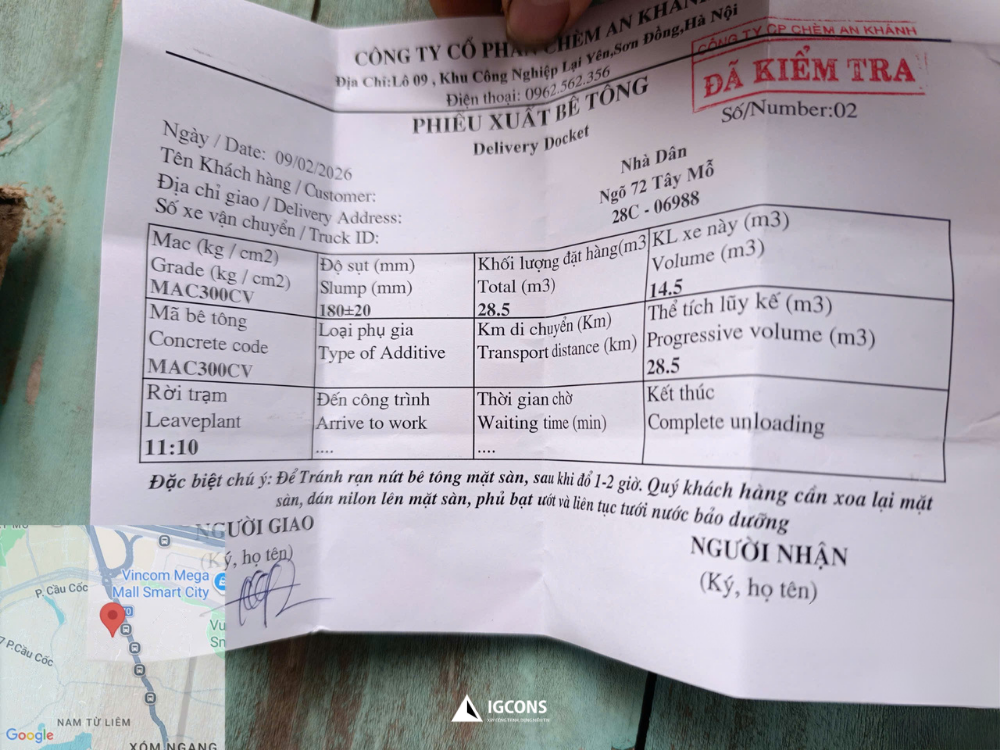 CÔNG TY CỔ PHẦN CHÈM AN KHÁNH
Địa Chỉ:Lô 09 , Khu Công Nghiệp Lại Yên,Sơn Đồng,Hà Nội
Điện thoại: 0962.562.356
CÔNG TY CP CHÈM AN KHÁNH
ĐÃ KIỂM TRA
PHIẾU XUẤT BÊ TÔNG
Số/Number:02
Delivery Docket
Ngày / Date: 09/02/2026
Tên Khách hàng / Customer: Nhà Dân
Địa chỉ giao / Delivery Address: Ngõ 72 Tây Mỗ
Số xe vận chuyển / Truck ID: 28C - 06988
Mac (kg / cm2)
Grade (kg / cm2)
MAC300CV
Độ sụt (mm)
Slump (mm)
180±20
Khối lượng đặt hàng(m3
Total (m3)
28.5
KL xe này (m3)
Volume (m3)
14.5
Mã bê tông
Concrete code
MAC300CV
Loại phụ gia
Type of Additive
Km di chuyển (Km)
Transport distance (km)
Thể tích lũy kế (m3)
Progressive volume (m3)
28.5
Rời trạm
Leaveplant
11:10
Đến công trình
Arrive to work
....
Thời gian chờ
Waiting time (min)
....
Kết thúc
Complete unloading
Đặc biệt chú ý: Để Tránh rạn nứt bê tông mặt sàn, sau khi đổ 1-2 giờ. Quý khách hàng cần xoa lại mặt
sàn, dán nilon lên mặt sàn, phủ bạt ướt và liên tục tưới nước bảo dưỡng
NGƯỜI GIAO
(Ký, họ tên)
NGƯỜI NHẬN
(Ký, họ tên)
Vincom Mega
Mall Smart City
P. Cầu Cốc
P. Cầu Cốc
NAM TỪ LIÊM
XÓM NGANG
Google
IGCONS